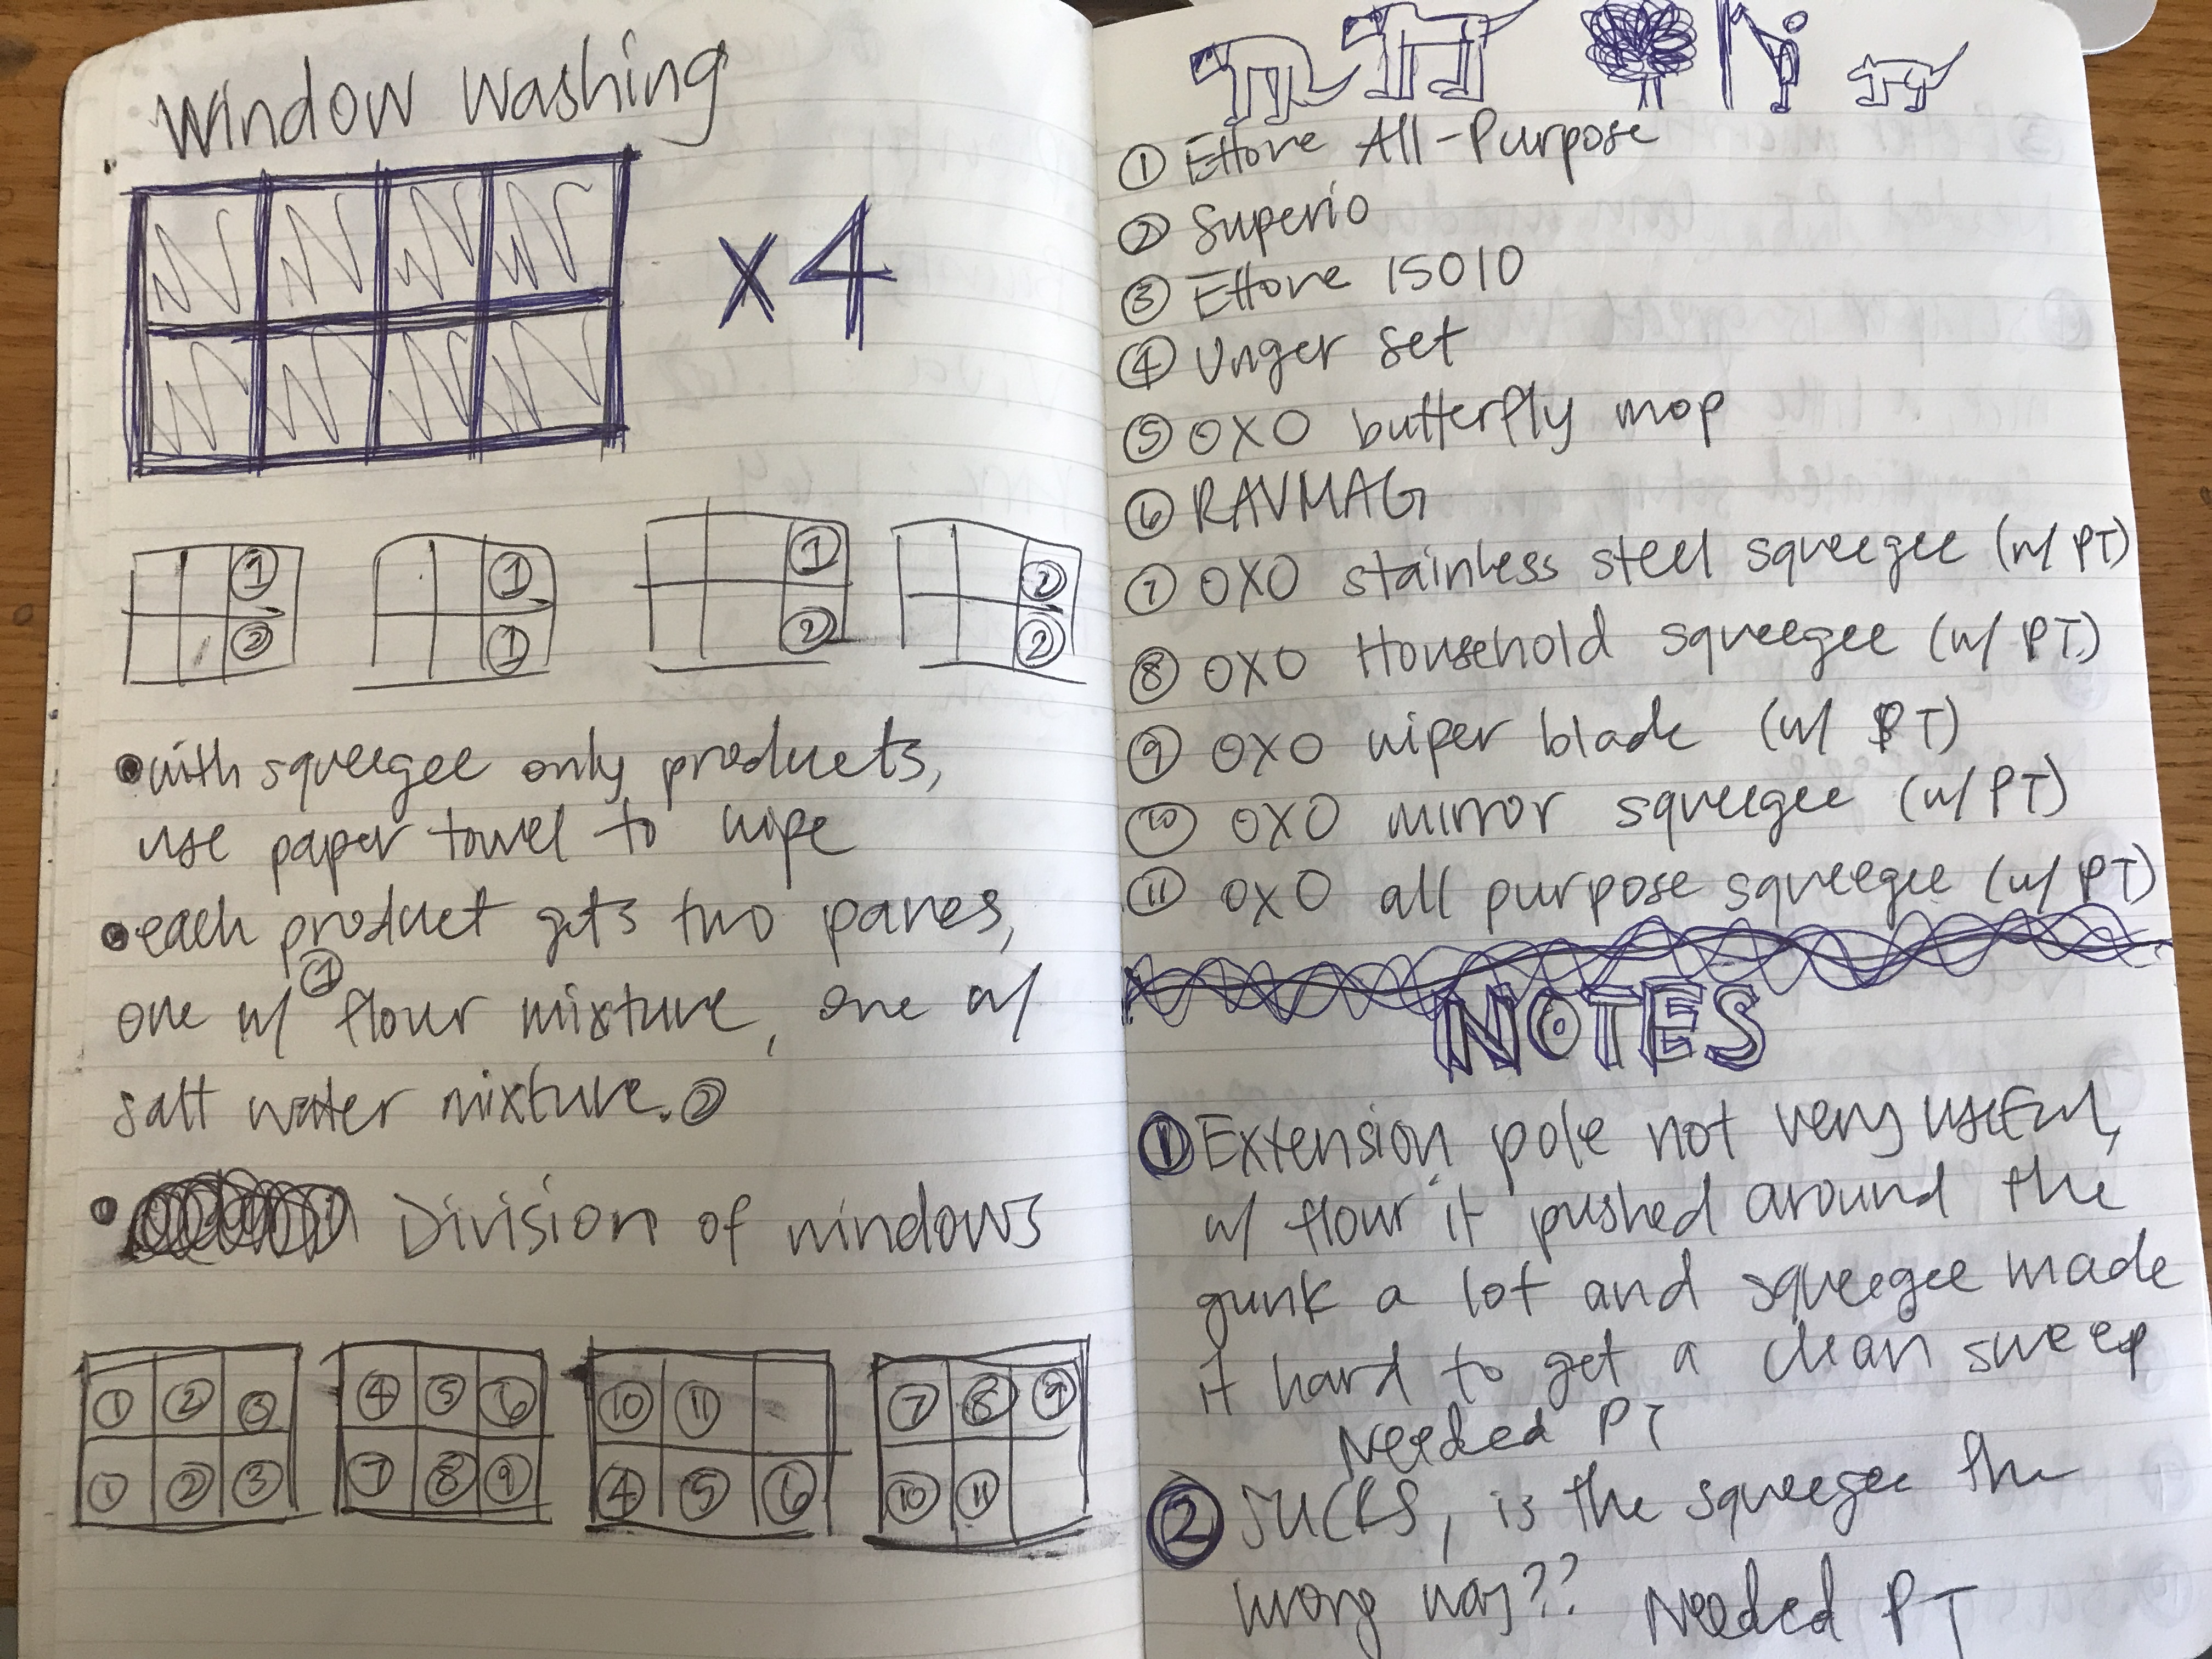 Window washing
x4
① ① ① ②
② ① ② ②
• with squeegee only products,
use paper towel to wipe
• each product gets two panes,
one w/ flour mixture, one w/
①
salt water mixture. ②
• Division of windows
① ② ③ ④ ⑤ ⑥ ⑩ ⑪ ⑦ ⑧ ⑨
① ② ③ ⑦ ⑧ ⑨ ④ ⑤ ⑥ ⑩ ⑪
① Ettore All-Purpose
② Superio
③ Ettore 15010
④ Unger Set
⑤ OXO butterfly mop
⑥ RAVMAG
⑦ OXO stainless steel squeegee (w/ PT)
⑧ OXO Household squeegee (w/ PT)
⑨ OXO wiper blade (w/ PT)
⑩ OXO mirror squeegee (w/ PT)
⑪ OXO all purpose squeegee (w/ PT)
NOTES
① Extension pole not very useful,
w/ flour it pushed around the
gunk a lot and squeegee made
it hard to get a clean sweep
Needed PT
② SUCKS, is the squeegee the
wrong way?? Needed PT